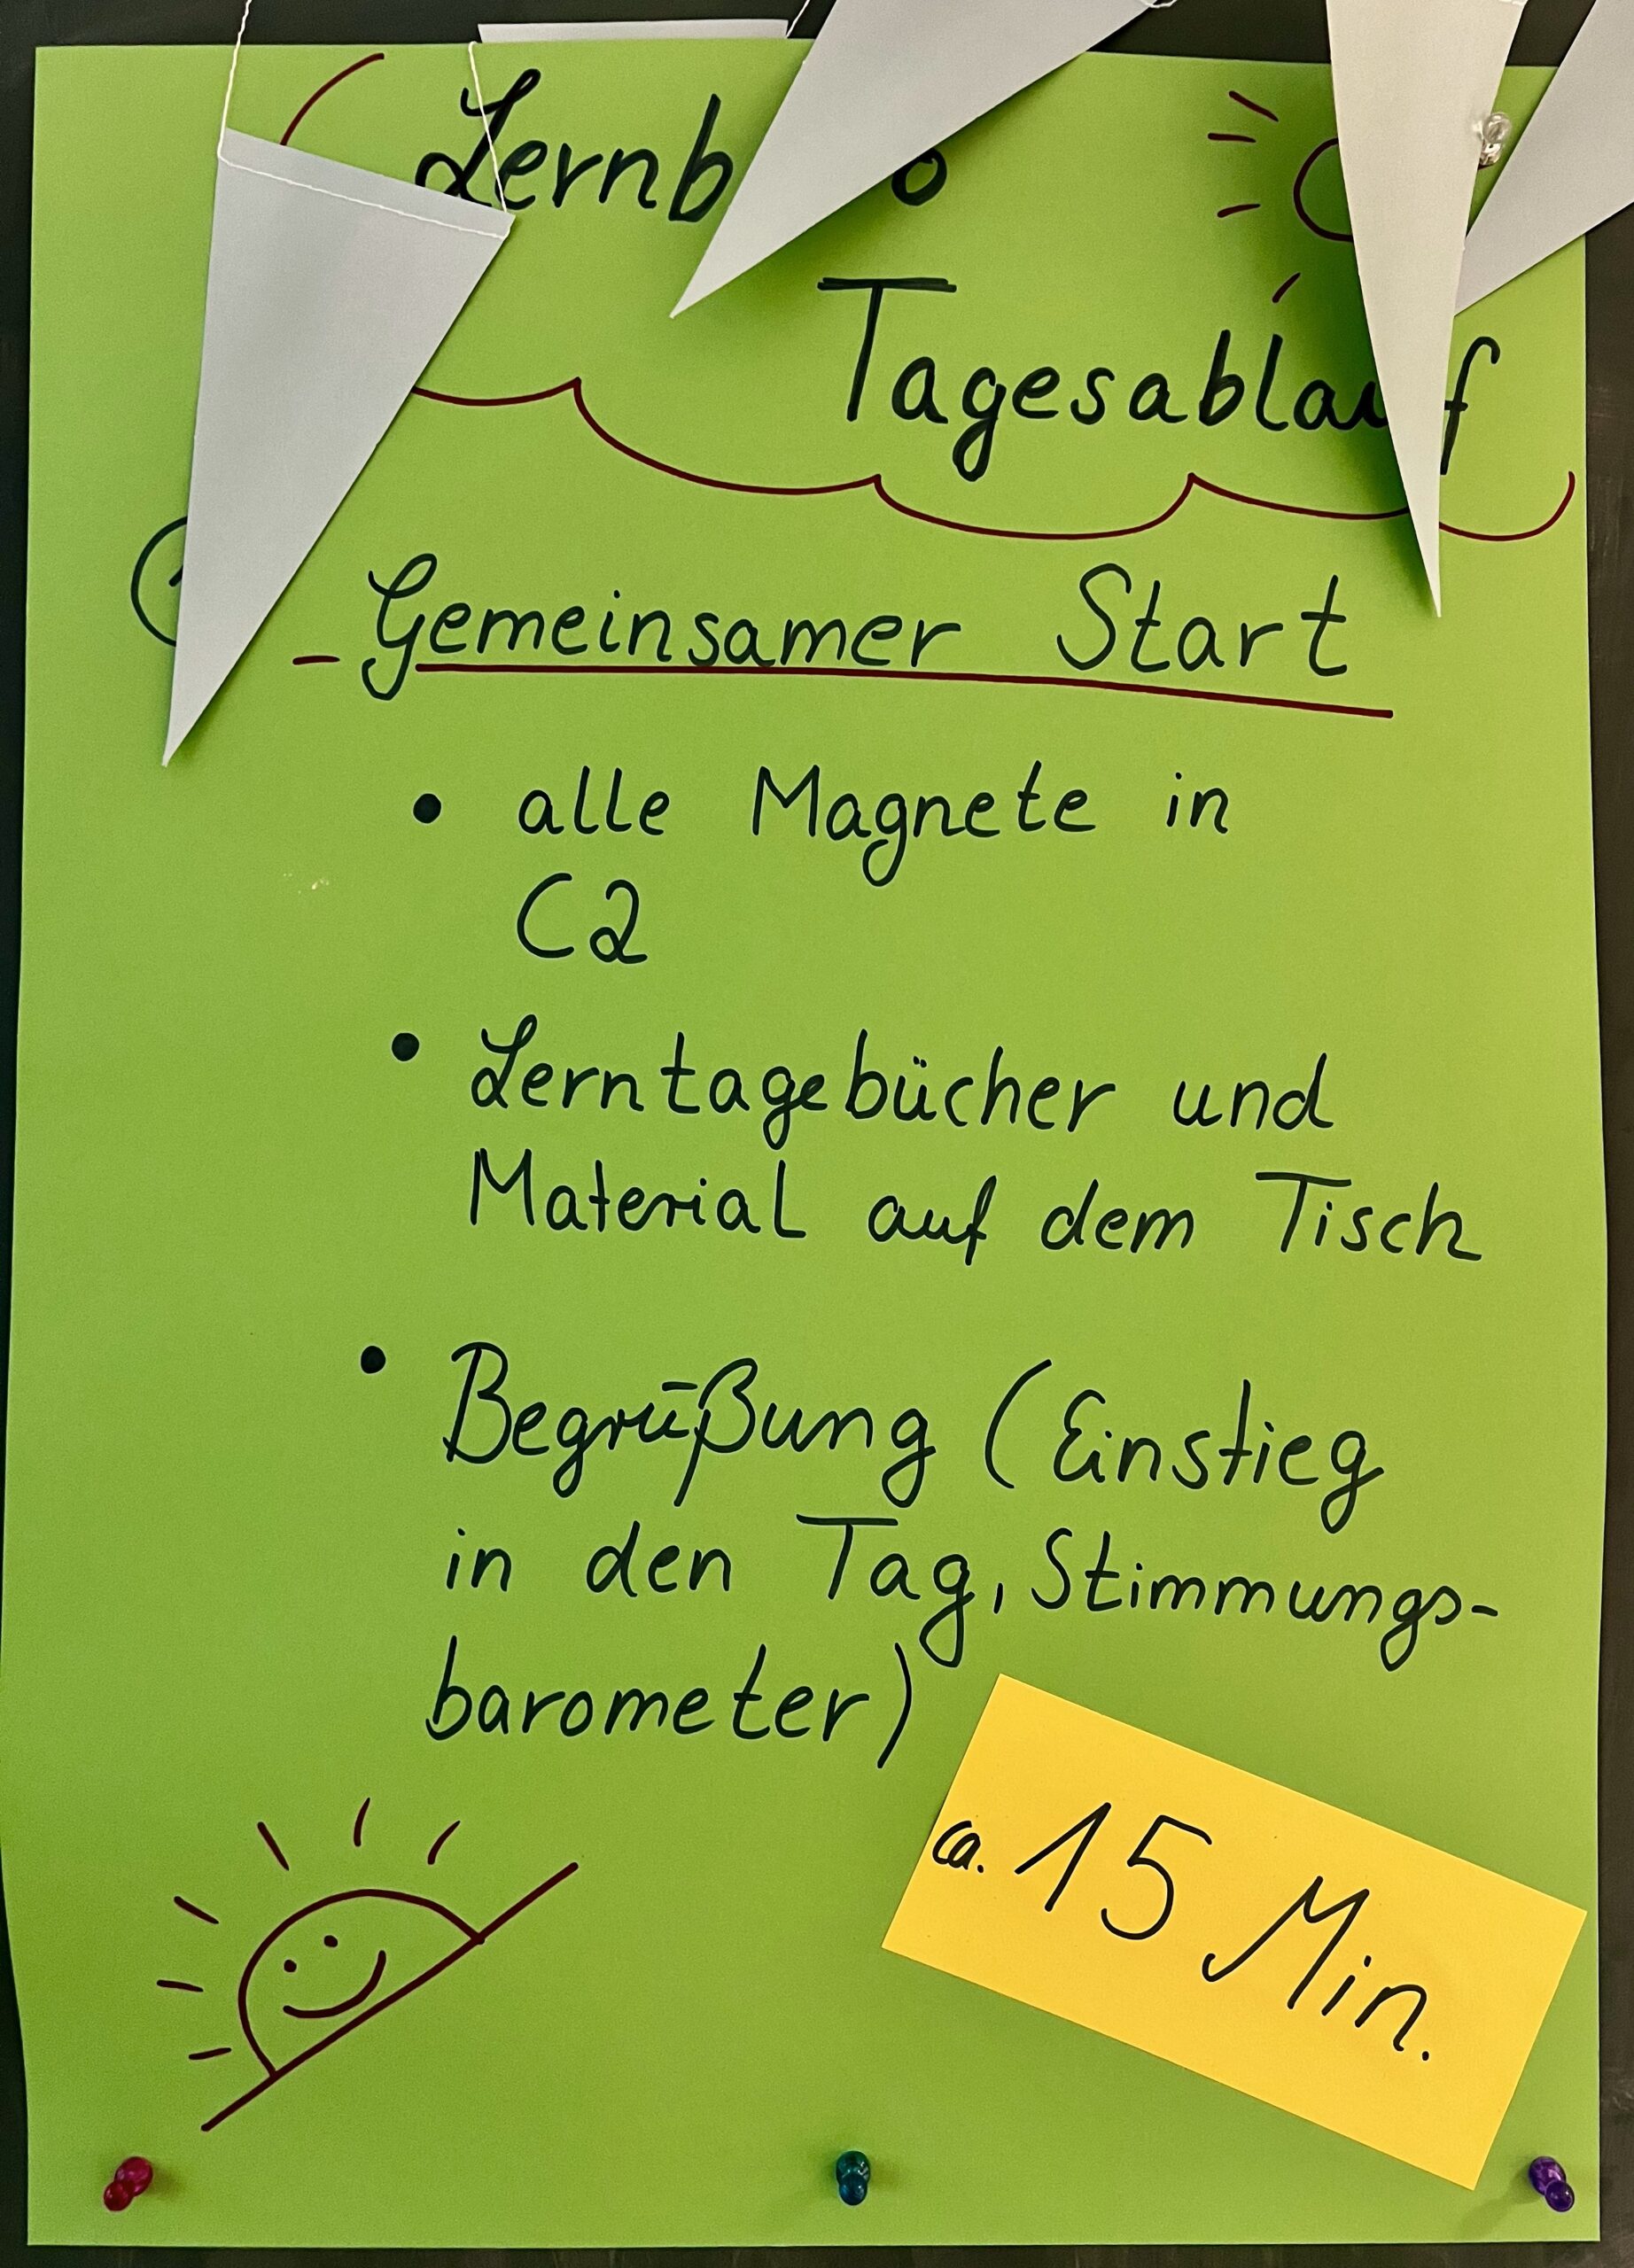 Tagesablauf
Gemeinsamer Start
• alle Magnete in
C2
• Lerntagebücher und
Material auf dem Tisch
• Begrüßung (Einstieg
in den Tag, Stimmungs-
barometer)
ca. 15 Min.